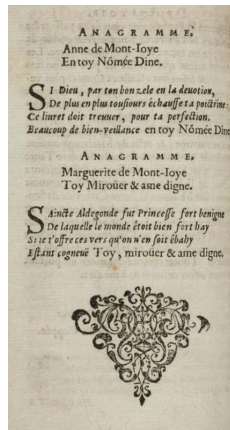 ANAGRAMME.
Anne de Mont-Ioye
En toy Nómée Dine.
SI Dieu, par ton bon zele en la deuotion,
De plus en plus tousiours échauffe ta poictrine:
Ce liuret doit treuuer, pour ta perfection.
Beaucoup de bien-veillance en toy Nómée Dine
ANAGRAMME.
Marguerite de Mont-Ioye
Toy Mirouër & ame digne.
SAincte Aldegonde fut Princesse fort benigne
De laquelle le monde étoit bien fort hay
Si ie t'offre ces vers qu'on n'en soit ébahy
Estant cogneuë Toy, mirouër & ame digne.